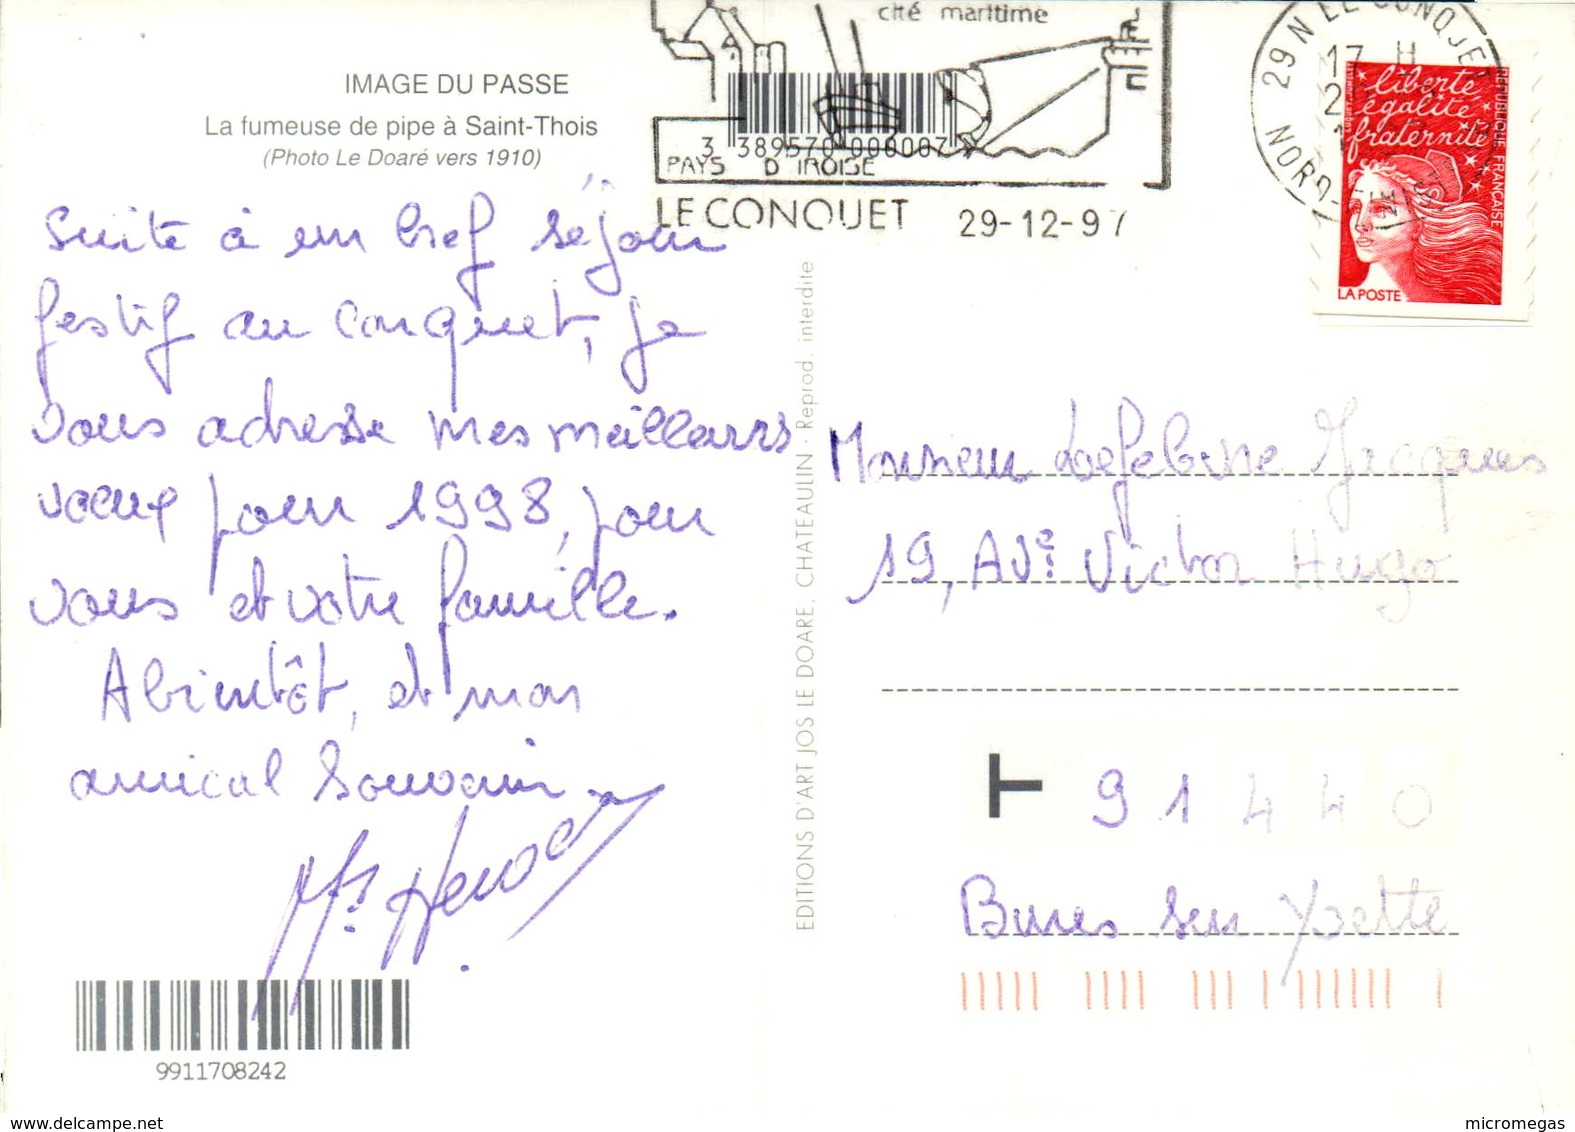 cité maritime
3 389570 000007
PAYS D'IROISE
LE CONQUET 29-12-97
29 N LE CONQUET
17 H
NORD-FIN
liberté
égalité
fraternité
REPUBLIQUE FRANÇAISE
LA POSTE
IMAGE DU PASSE
La fumeuse de pipe à Saint-Thois
(Photo Le Doaré vers 1910)
Suite à un bref séjour
festif au Conquet, je
vous adresse mes meilleurs
voeux pour 1998, pour
vous et votre famille.
A bientôt, et mon
amical Souvenir
EDITIONS D'ART JOS LE DOARE, CHATEAULIN - Reprod. interdite
Monsieur Lefebvre Jacques
19, Ave. Victor Hugo
91440
Bures sur Yvette
9911708242
delcampe.net
micromegas